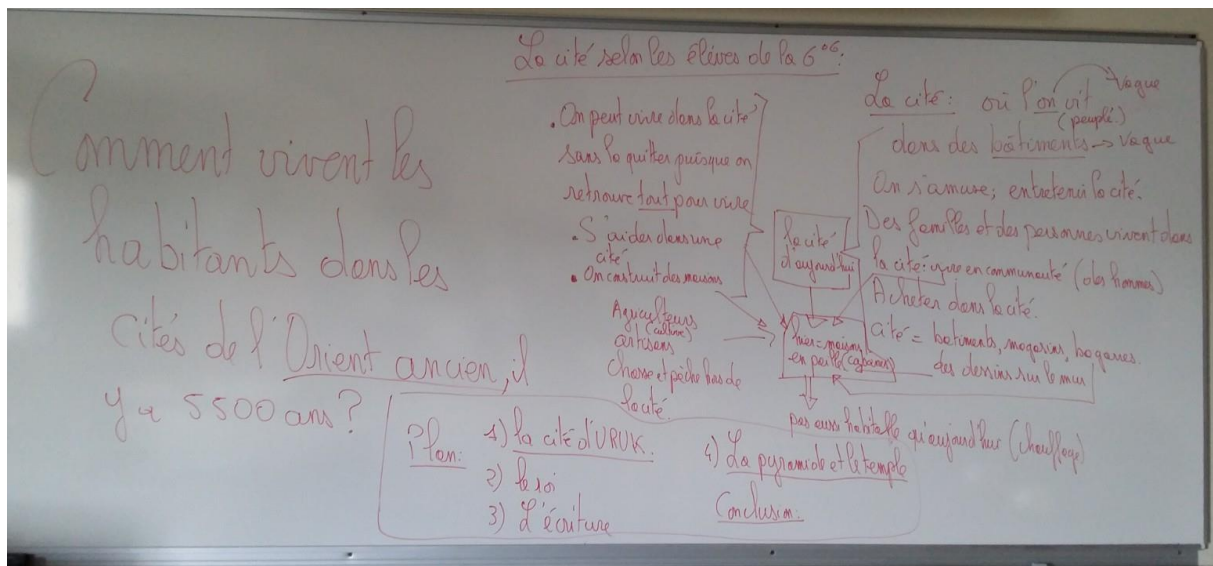 La cité selon les élèves de la 6°6:
Comment vivent les
habitants dans les
cités de l'Orient ancien, il
y a 5500 ans?
. On peut vivre dans la cité
sans la quitter puisque on
retrouve tout pour vivre
. S'aider dans une
cité
. On construit des maisons
Agriculteurs
(culture)
artisans
Chasse et pêche hors de
la cité.
la cité
d'aujourd'hui
hier = maisons
en paille (cabanes)
pas aussi habitable qu'aujourd'hui (chauffage)
La cité: où l'on vit
Vague
(peuplé)
dans des bâtiments → Vague
On s'amuse; entretenir la cité.
Des familles et des personnes vivent dans
la cité: vivre en communauté (des hommes)
Acheter dans la cité.
cité = batiments, magasins, bagarres.
des dessins sur le mur
Plan:
1) la cité d'URUK.
2) le roi
3) L'écriture
4) La pyramide et le temple
Conclusion: